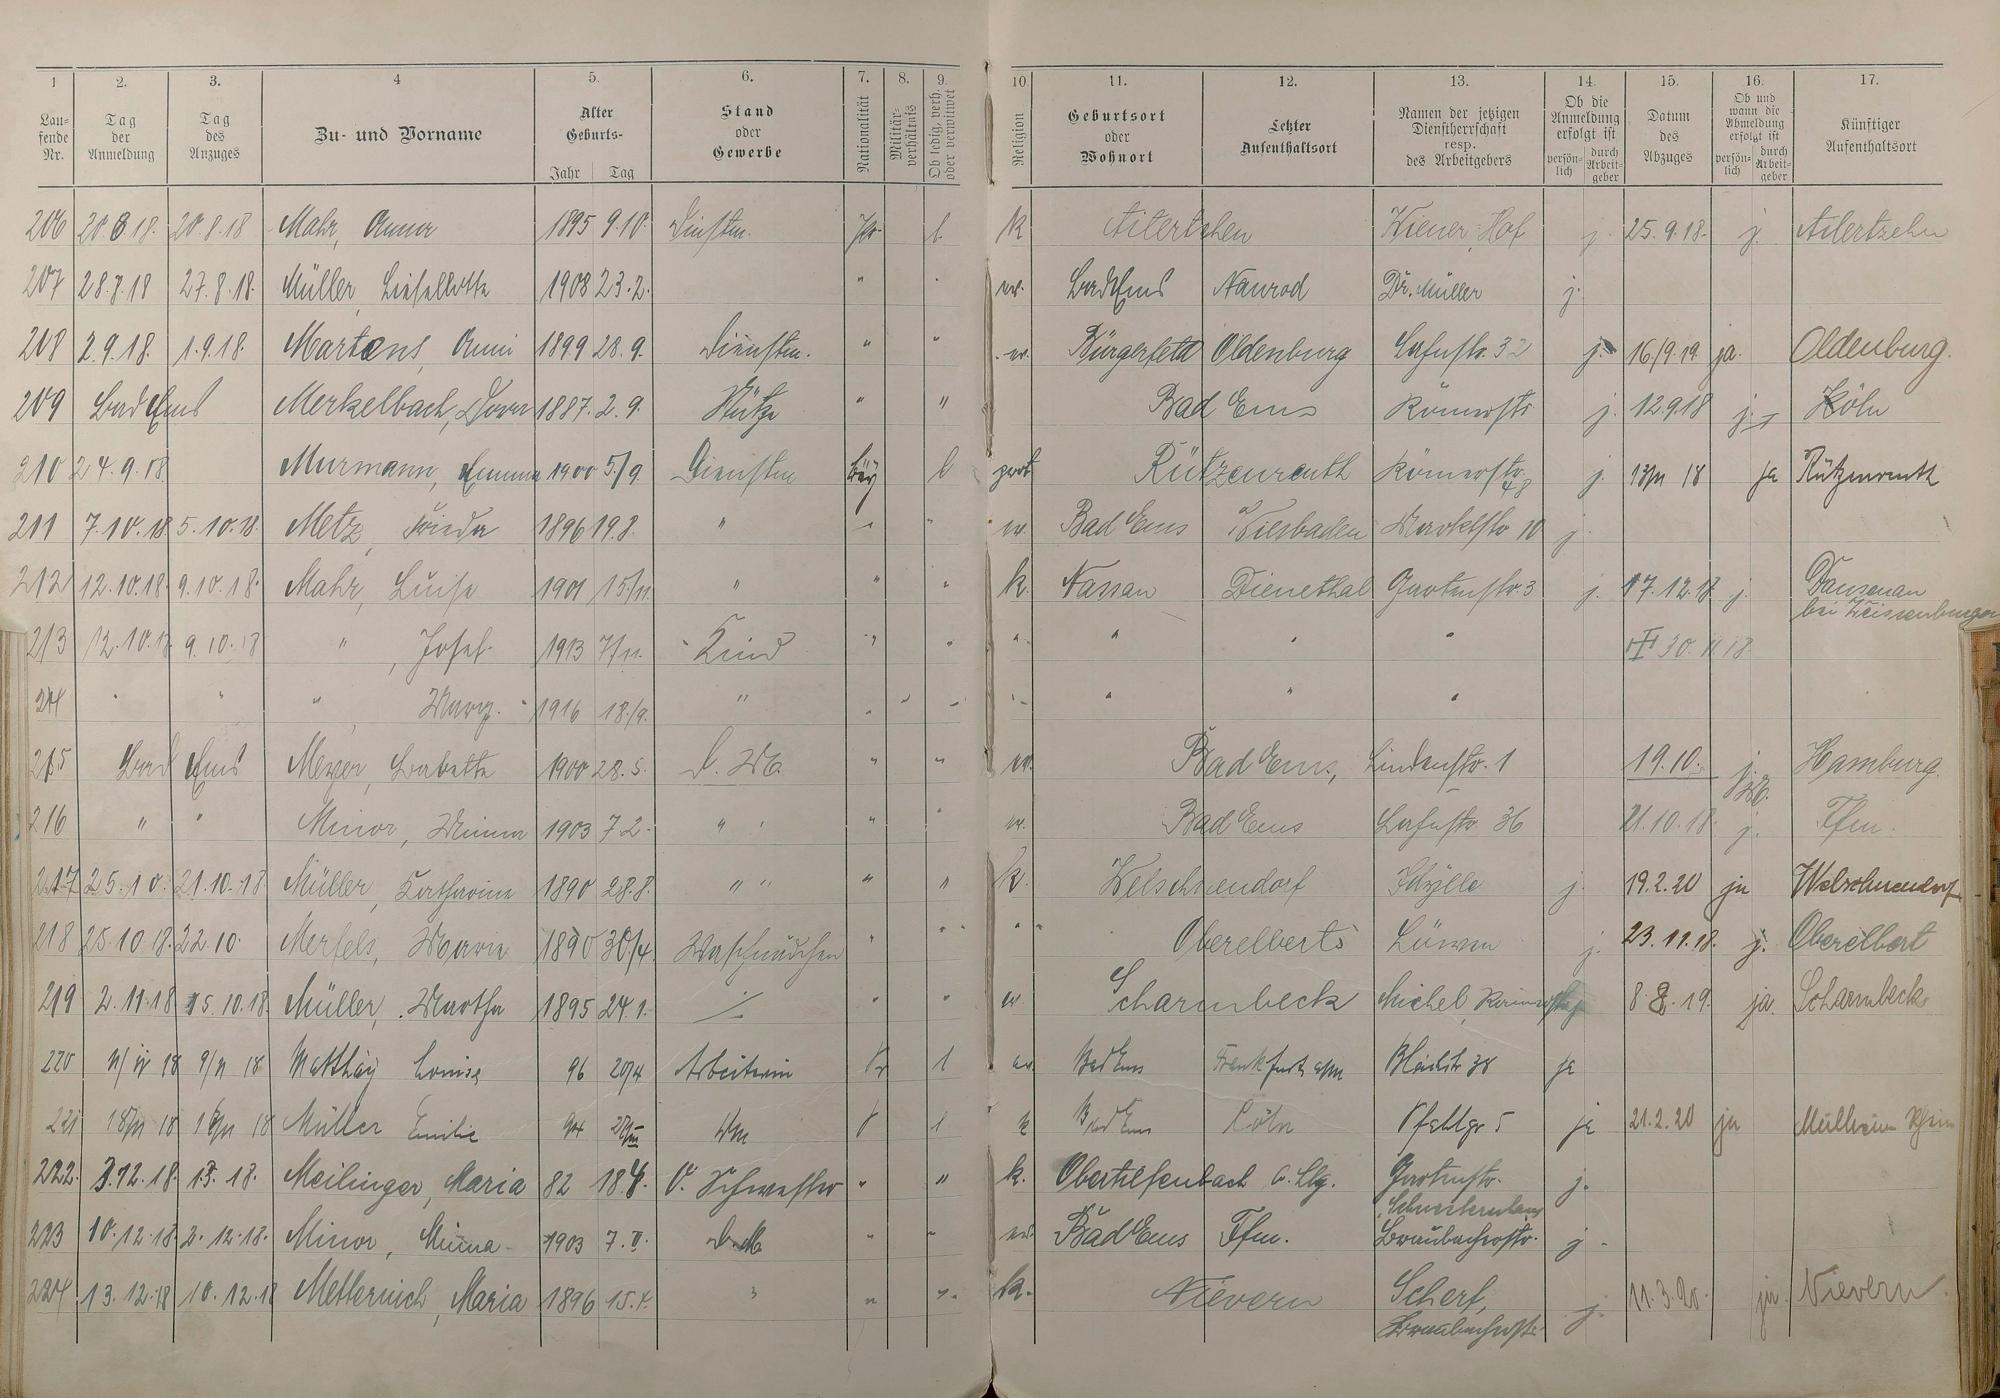 1 2. 3. 4 5. 6. 7. 8. 9. 10. 11. 12. 13. 14. 15. 16. 17.
Lau-
fende
Nr.
Tag
der
Anmeldung
Tag
des
Anzuges
Zu- und Vorname
Alter
Geburts-
Jahr Tag
Stand
oder
Gewerbe
Nationalität
Militär-
verhältnis
Ob ledig, verh.
oder verwitwet
Religion
Geburtsort
oder
Wohnort
Letzter
Aufenthaltsort
Namen der jetzigen
Dienstherrschaft
resp.
des Arbeitgebers
Ob die
Anmeldung
erfolgt ist
persön-
lich
durch
Arbeit-
geber
Datum
des
Abzuges
Ob und
wann die
Abmeldung
erfolgt ist
persön-
lich
durch
Arbeit-
geber
Künftiger
Aufenthaltsort
206 20.8.18. 20.8.18 Mahr, Anna 1895 9.10. Dienstm. Pr. l. k Ailertchen Wiener Hof j. 25.9.18. j. Ailertzehn
207 28.8.18 27.8.18. Müller, Liesellotte 1908 23.2. " ev. Bad Ems Naurod Dr. Müller j.
208 2.9.18. 1.9.18. Martens, Anni 1899 28.9. Dienstm. " " ev. Bürgerfeld Oldenburg Lahnstr. 32 j. 16/9.19 ja. Oldenburg.
209 Bad Ems Merkelbach, Dora 1887. 2.9. Stütze " " Bad Ems Römerstr j. 12.9.18 j. Köln
210 24.9.18. Murmann, Emma 1900 5/9. Dienstm bay l prot Rützenreuth Römerstr. 48 j. 18 ja Rützenreuth
211 7.10.18 5.10.18. Metz, Frieda 1896 19.8. " " " ev. Bad Ems Wiesbaden Marktstr 10 j
212 12.10.18. 9.10.18. Mahr, Luise 1901 15/11. " " " k. Nassau Dienethal Gartenstr. 3 j. 17.12.18 j. Dausenau
bei
213 12.10.18 9.10.18 " , Josef 1913 7/11. Kind " " " " " " 30.11.18
214 " " " Marg. 1916 18./9. " " " " " " " "
215 Bad Ems Meyer, Babette 1900 28.5. D. M. " " ev. Bad Ems, Lindenstr. 1 19.10. j. Hamburg.
216 " " Minor, Minna 1903 7.2. " " " " ev. Bad Ems Lahnstr. 36 21.10.18. j. Ffm.
217 25.10. 21.10.18 Müller, Katharina 1890 28.8. " " " " k. Welschneudorf Idylle j. 19.2.20 ja Welschneudorf
218 25.10.18. 22.10. Merfels, Maria 1890 30/4. Waschmädchen " " " Oberelberts Löwen j. 23.11.18. j. Oberelbert
219 2.11.18 15.10.18. Müller, Martha 1895 24.1. ./. " " ev. Scharmbeck Michel, j 8.8.19. ja. Scharmbeck
220 11/11 18 9/11 18 Matthäy Louise 96 20/4 Arbeiterin Pr l ev. Bad Ems Frankfurt a/m 38 ja
221 18/11 18 18 Müller Emilie 94 l k Bad Ems Cöln Pfahlgr 5 ja 21.2.20 ja Mülheim Rhein
222. 3.12.18. Meilinger, Maria 82 18.4. O. Schwester " " k. Obertiefenbach Gartenstr. j.
Schwesternhaus
223 10.12.18. 2.12.18. Minor, Minna 1903 7.II. D. M. " " ev. Bad Ems Ffm. Braubacherstr. j.
224 13.12.18 10.12.18 Metternich, Maria 1896 " " " k. Nievern Scherf, j. 11.3.20. ja. Nievern.
Braubacherstr.